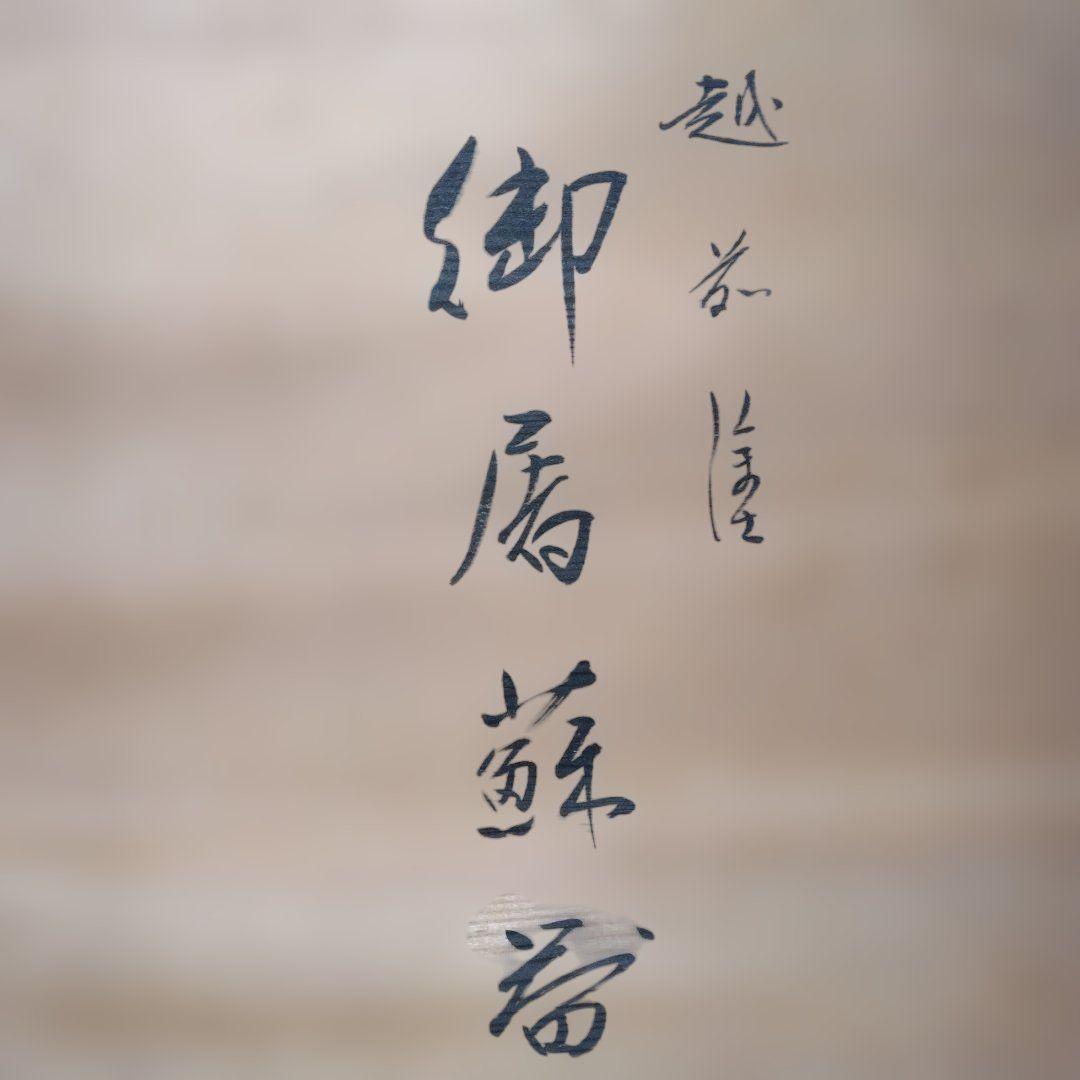 越前塗
御屠蘇器